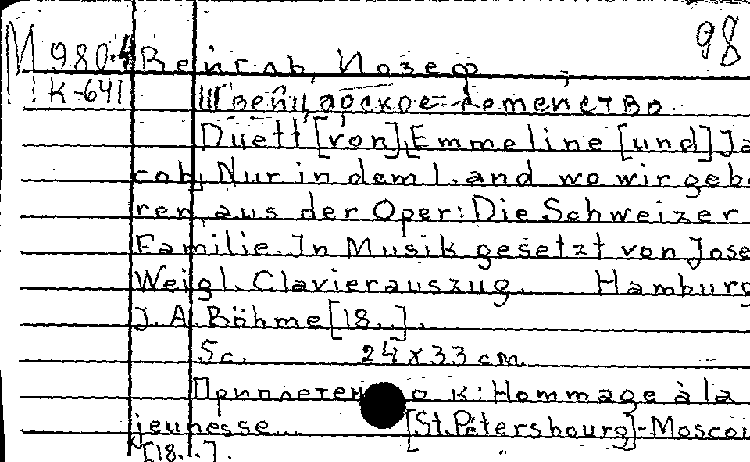 98
М 980.4 Вейгль, Иозеф
К-641 Швейцарское семейство
Duett [von] Emmeline [und] Ja
cob, Nur in dem Land wo wir gebo
ren, aus der Oper: Die Schweizer
Familie. In Musik gesetzt von Jose
Weigl. Clavierauszug. Hamburg
J. A. Böhme [18..].
5 с. 24 x 33 см.
Приплетено к: Hommage à la
jeunesse... [St. Pétersbourg]-Moscou
[18..].